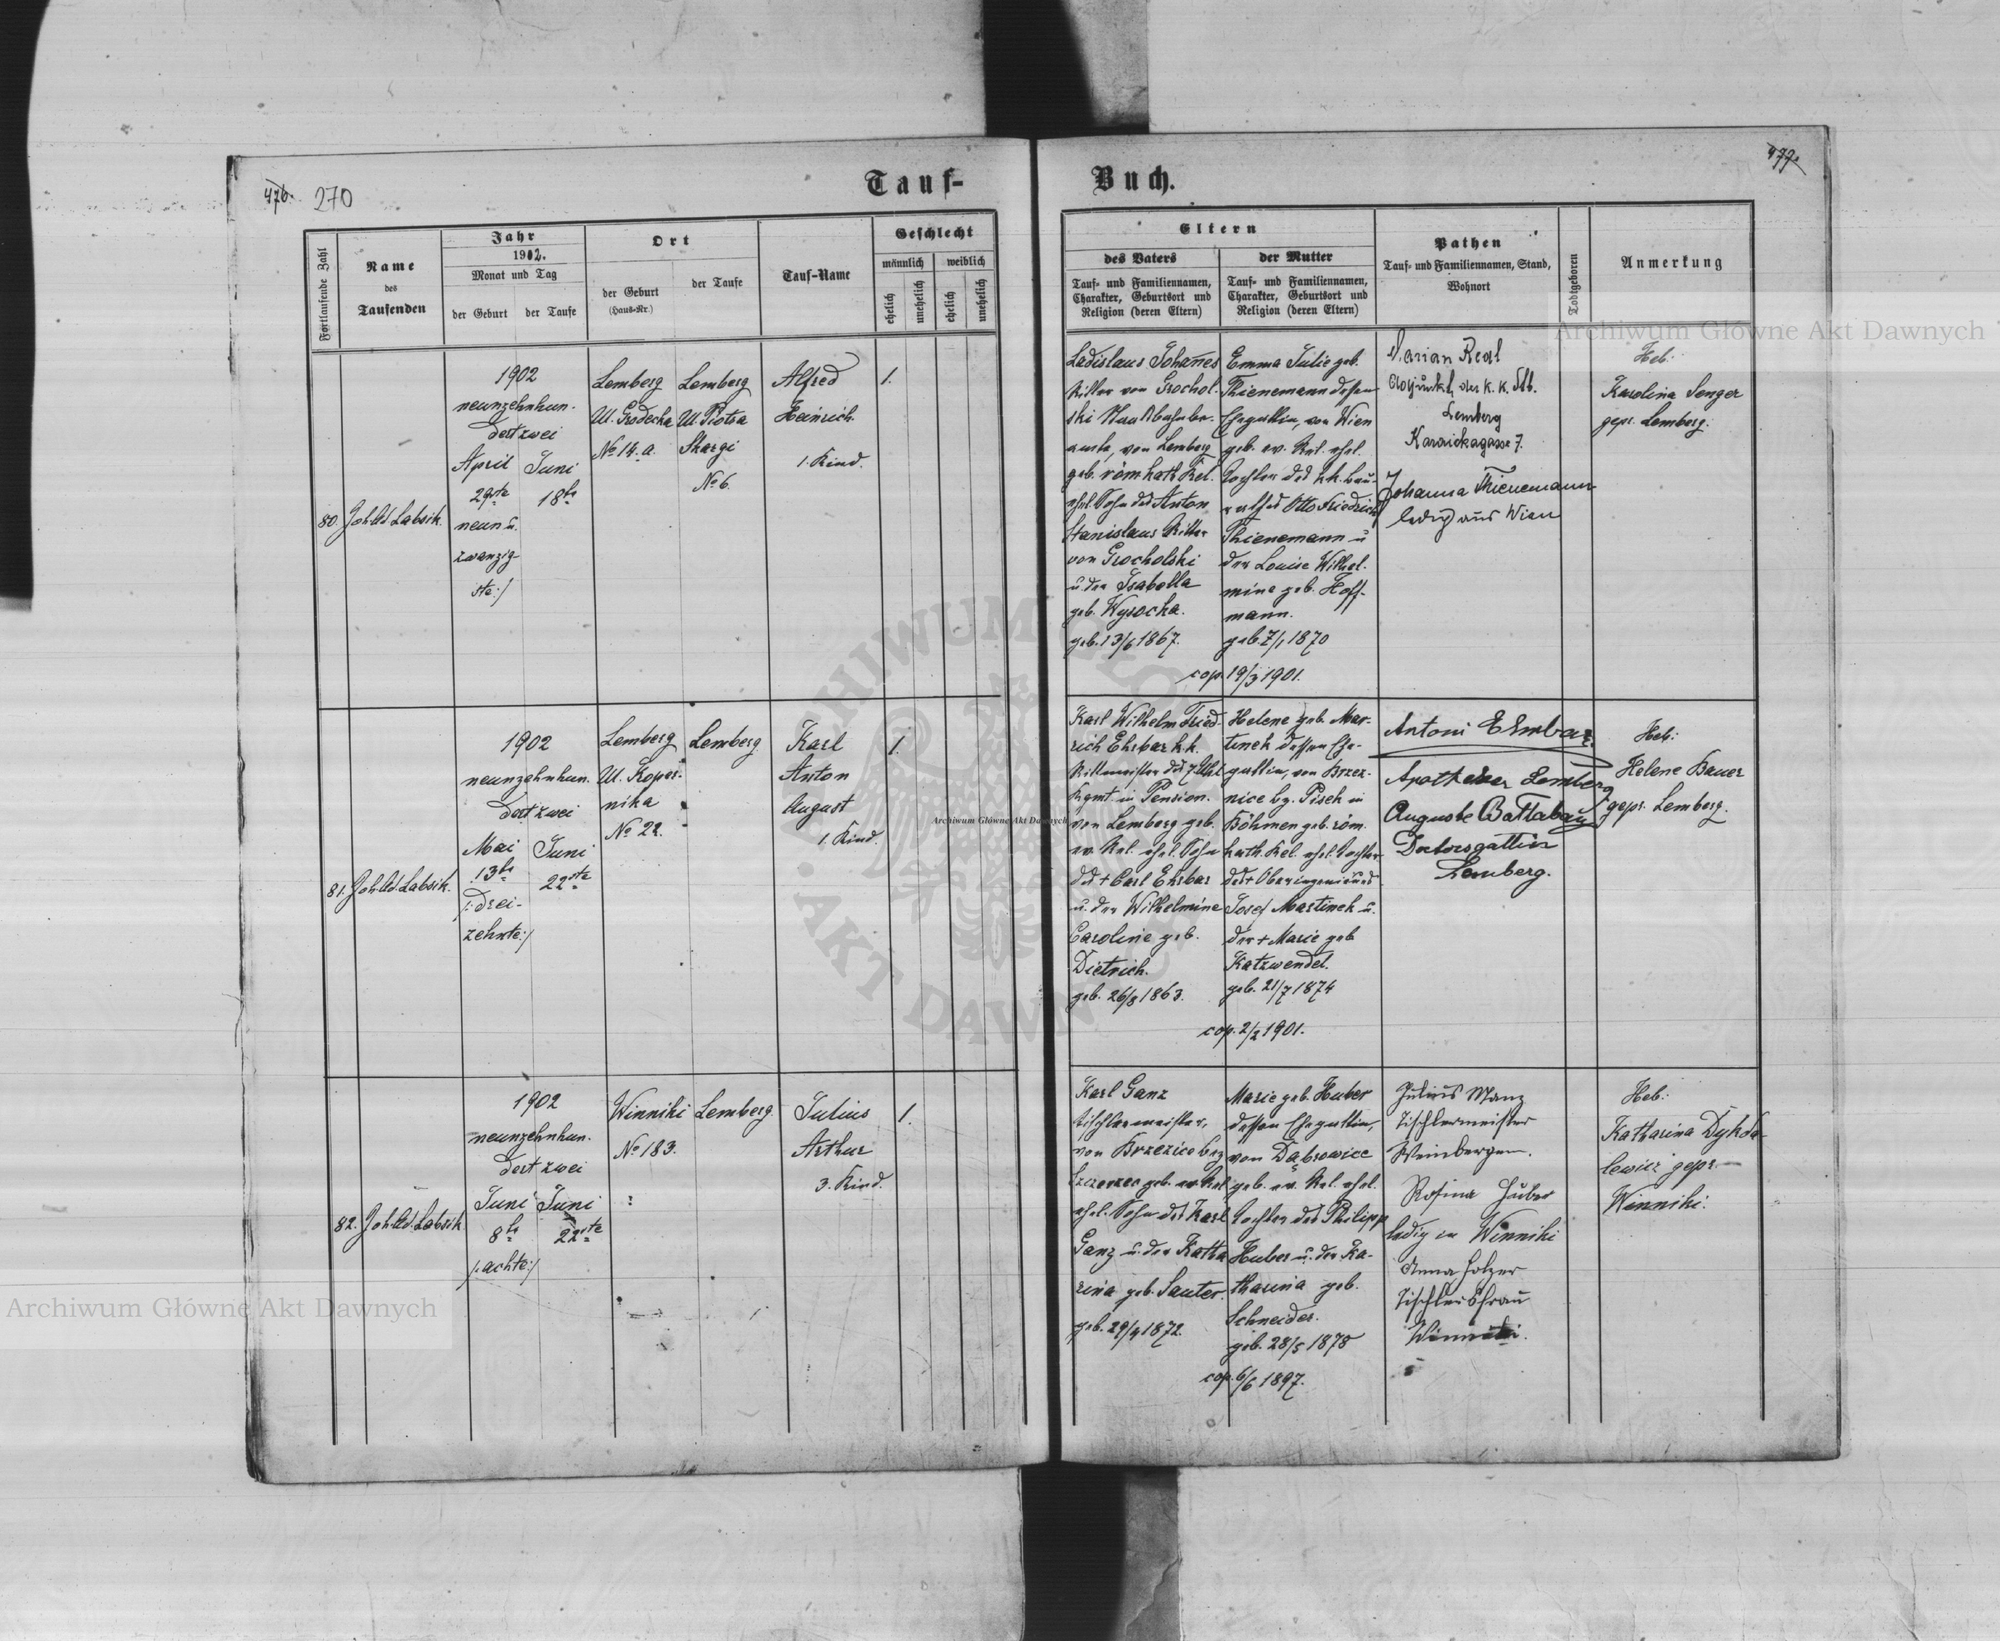 476. 270
Tauf-
Buch.
477.
Fortlaufende Zahl
Name
des
Taufenden
Jahr
1902.
Monat und Tag
der Geburt
der Taufe
Ort
der Geburt
(Haus-Nr.)
der Taufe
Tauf-Name
Geschlecht
männlich
weiblich
ehelich
unehelich
ehelich
unehelich
Eltern
des Vaters
Tauf- und Familiennamen,
Charakter, Geburtsort und
Religion (deren Eltern)
der Mutter
Tauf- und Familiennamen,
Charakter, Geburtsort und
Religion (deren Eltern)
Pathen
Tauf- und Familiennamen, Stand,
Wohnort
Todtgeboren
Anmerkung
80.
Joh Ld Labsik.
1902
neunzehnhun-
dert zwei
April
29ste
neun u.
zwanzig
ste:/
Juni
18te
Lemberg
Ul. Grodecka
No 14. a.
Lemberg
Ul. Piotra
Skargi
No 6.
Alfred
Heinrich.
1. Kind.
1.
Ladislaus Johannes
Ritter von Grochol-
ski Staatsbahnbe-
amte, von Lemberg
geb. röm kath Rel.
ehel. Sohn des Anton
Stanislaus Ritter
von Grocholski
u. der Isabella
geb. Wysocka.
geb. 13/6 1867.
Emma Julie geb.
Thienemann dessen
Ehegattin, von Wien
geb. ev. Rel. ehel.
Tochter des k.k. Bau-
rathes Otto Friedrich
Thienemann u
der Louise Wilhel-
mine geb. Hoff-
mann.
geb. 7/1 1870
cop. 19/3 1901.
Marian Real
Adjunkt der k. k. Stb.
Lemberg
Karaickagasse 7.
Johanna Thienemann
ledig aus Wien
Heb:
Karolina Senger
gepr. Lemberg.
81.
Joh Ld Labsik.
1902
neunzehnhun-
dert zwei
Mai
13te
/: drei-
zehnte:/
Juni
22ste
Lemberg
Ul. Koper-
nika
No 22.
Lemberg
Karl
Anton
August
1. Kind.
1.
Karl Wilhelm Fried-
rich Ehrbar k.k.
Rittmeister des 7. Uhl.
Rgmt. in Pension.
von Lemberg geb.
ev. Rel. ehel. Sohn
des + Carl Ehrbar
u. der Wilhelmine
Caroline geb.
Dietrich.
geb. 26/8 1863.
Helene geb. Mar-
tinek dessen Ehe-
gattin, von Brzez-
nice bz. Pisek in
Böhmen geb. röm.
kath. Rel. ehel. Tochter
des + Oberingenieurs
Josef Martinek u.
der + Marie geb
Katzwendel.
geb. 21/7 1874
cop. 2/2 1901.
Antoni Ehrbar
Apotheker Lemberg
Auguste
Doctorsgattin
Lemberg.
Heb:
Helene Bauer
gepr. Lemberg.
82.
Joh Ld Labsik
1902
neunzehnhun-
dert zwei
Juni
8te
/: achte:/
Juni
22ste
Winniki
No 183.
Lemberg.
Julius
Arthur
3. Kind.
1.
Karl Ganz
Tischlermeister,
von Brzezice bez
Szczerzec geb. ev Rel
ehel. Sohn des Karl
Ganz u. der Katha
rina geb. Sauter.
geb. 29/4 1872.
Marie geb. Huber
dessen Ehegattin,
von Dąbrowice
geb. ev. Rel. ehel.
Tochter des Philipp
Huber u. der Ka-
tharina geb.
Schneider.
geb. 28/5 1878
cop. 6/6 1897.
Julius Manz
Tischlermeister
Weinbergen.
Rosina Huber
ledig in Winniki
Anna Holzer
Tischlersfrau
Winniki.
Heb:
Katharina Dykda-
lewicz gepr.
Winniki.
Archiwum Główne Akt Dawnych
Archiwum Główne Akt Dawnych
Archiwum Główne Akt Dawnych